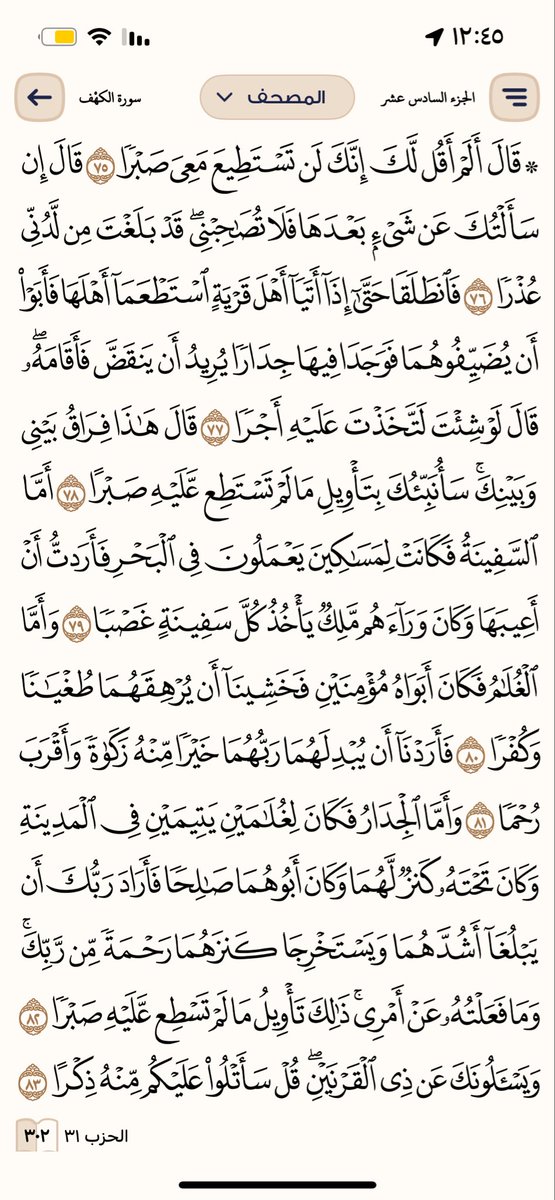 ١٢:٤٥
سورة الكهف
المصحف
الجزء السادس عشر
* قَالَ أَلَمْ أَقُل لَّكَ إِنَّكَ لَن تَسْتَطِيعَ مَعِىَ صَبْرًا ٧٥ قَالَ إِن
سَأَلْتُكَ عَن شَىْءٍۭ بَعْدَهَا فَلَا تُصَـٰحِبْنِىۖ قَدْ بَلَغْتَ مِن لَّدُنِّى
عُذْرًا ٧٦ فَٱنطَلَقَا حَتَّىٰٓ إِذَآ أَتَيَآ أَهْلَ قَرْيَةٍ ٱسْتَطْعَمَآ أَهْلَهَا فَأَبَوْا۟
أَن يُضَيِّفُوهُمَا فَوَجَدَا فِيهَا جِدَارًا يُرِيدُ أَن يَنقَضَّ فَأَقَامَهُۥۖ
قَالَ لَوْ شِئْتَ لَتَّخَذْتَ عَلَيْهِ أَجْرًا ٧٧ قَالَ هَـٰذَا فِرَاقُ بَيْنِى
وَبَيْنِكَۚ سَأُنَبِّئُكَ بِتَأْوِيلِ مَا لَمْ تَسْتَطِع عَّلَيْهِ صَبْرًا ٧٨ أَمَّا
ٱلسَّفِينَةُ فَكَانَتْ لِمَسَـٰكِينَ يَعْمَلُونَ فِى ٱلْبَحْرِ فَأَرَدتُّ أَنْ
أَعِيبَهَا وَكَانَ وَرَآءَهُم مَّلِكٌ يَأْخُذُ كُلَّ سَفِينَةٍ غَصْبًا ٧٩ وَأَمَّا
ٱلْغُلَـٰمُ فَكَانَ أَبَوَاهُ مُؤْمِنَيْنِ فَخَشِينَآ أَن يُرْهِقَهُمَا طُغْيَـٰنًا
وَكُفْرًا ٨٠ فَأَرَدْنَآ أَن يُبْدِلَهُمَا رَبُّهُمَا خَيْرًا مِّنْهُ زَكَوٰةً وَأَقْرَبَ
رُحْمًا ٨١ وَأَمَّا ٱلْجِدَارُ فَكَانَ لِغُلَـٰمَيْنِ يَتِيمَيْنِ فِى ٱلْمَدِينَةِ
وَكَانَ تَحْتَهُۥ كَنزٌ لَّهُمَا وَكَانَ أَبُوهُمَا صَـٰلِحًا فَأَرَادَ رَبُّكَ أَن
يَبْلُغَآ أَشُدَّهُمَا وَيَسْتَخْرِجَا كَنزَهُمَا رَحْمَةً مِّن رَّبِّكَۚ
وَمَا فَعَلْتُهُۥ عَنْ أَمْرِىۚ ذَٰلِكَ تَأْوِيلُ مَا لَمْ تَسْطِع عَّلَيْهِ صَبْرًا ٨٢
وَيَسْـَٔلُونَكَ عَن ذِى ٱلْقَرْنَيْنِۖ قُلْ سَأَتْلُوا۟ عَلَيْكُم مِّنْهُ ذِكْرًا ٨٣
الحزب ٣١
٣٠٢